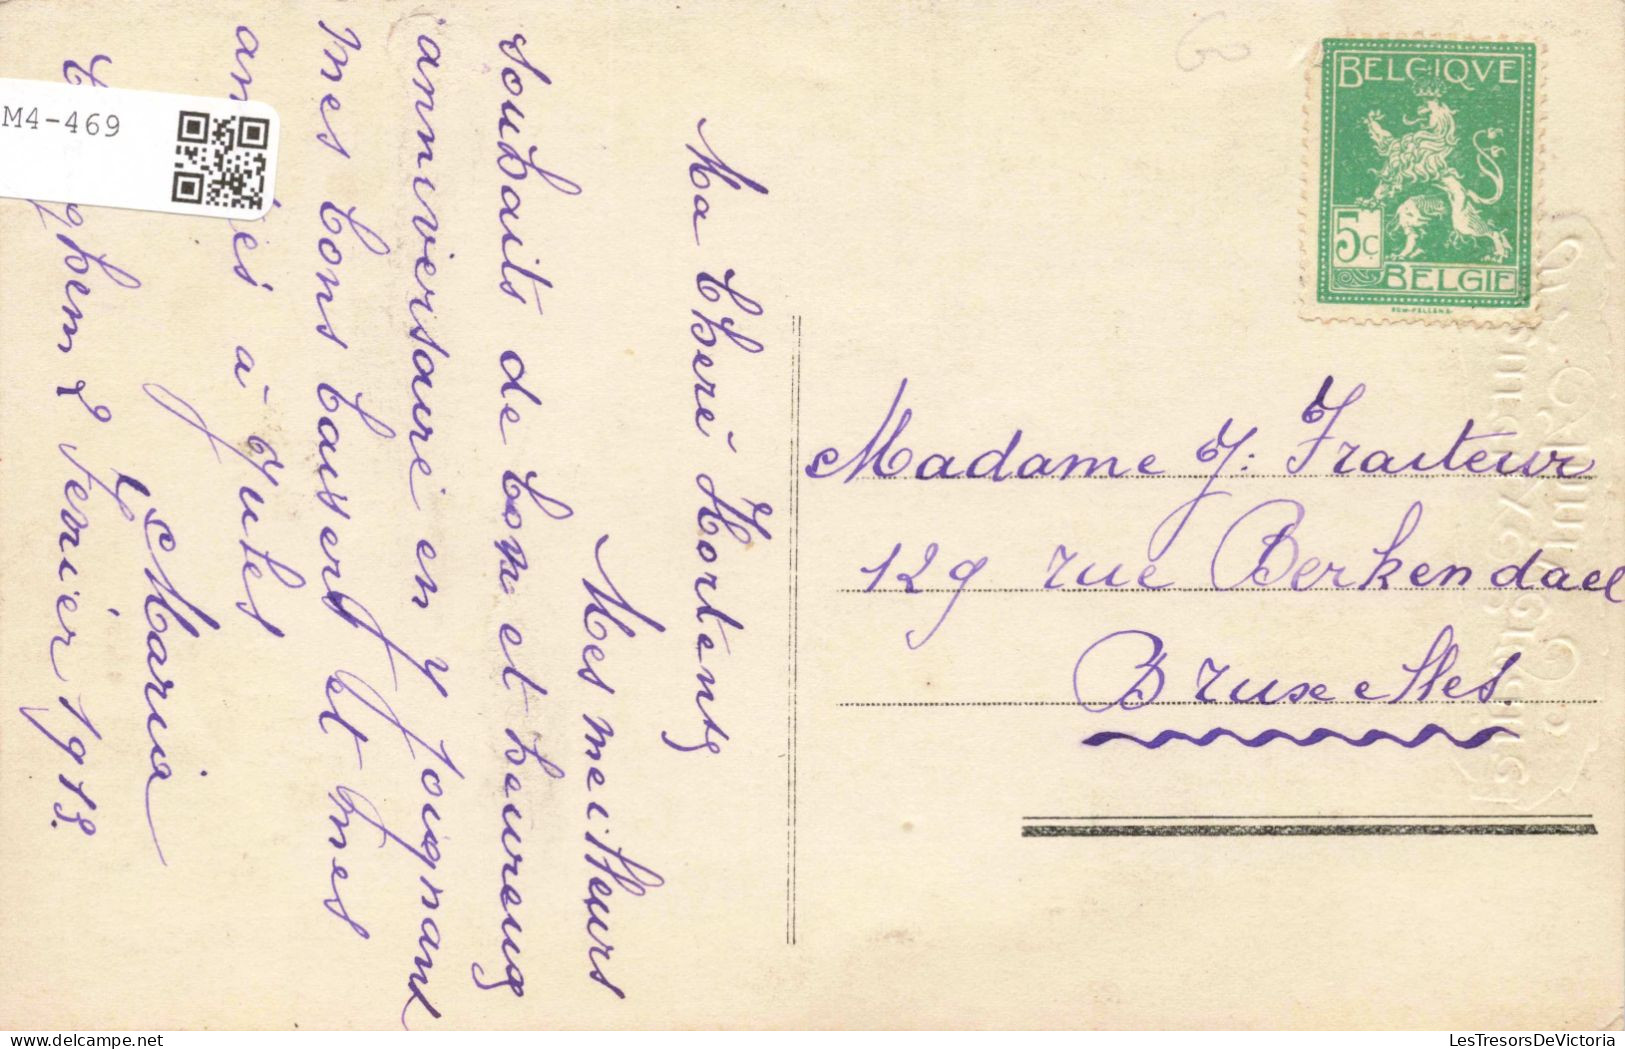 M4-469
Ma Cheré Hortens
Mes meilleurs
souhaits de bone et heureuq
anniversaire en y joignant
mes bons baisers et mes
à Jules
Maria
Fevrier 1913.
BELGIQVE
5c
BELGIE
Madame J. Traiteur
129 rue Berkendael
Bruxelles.
LesTresorsDeVictoria